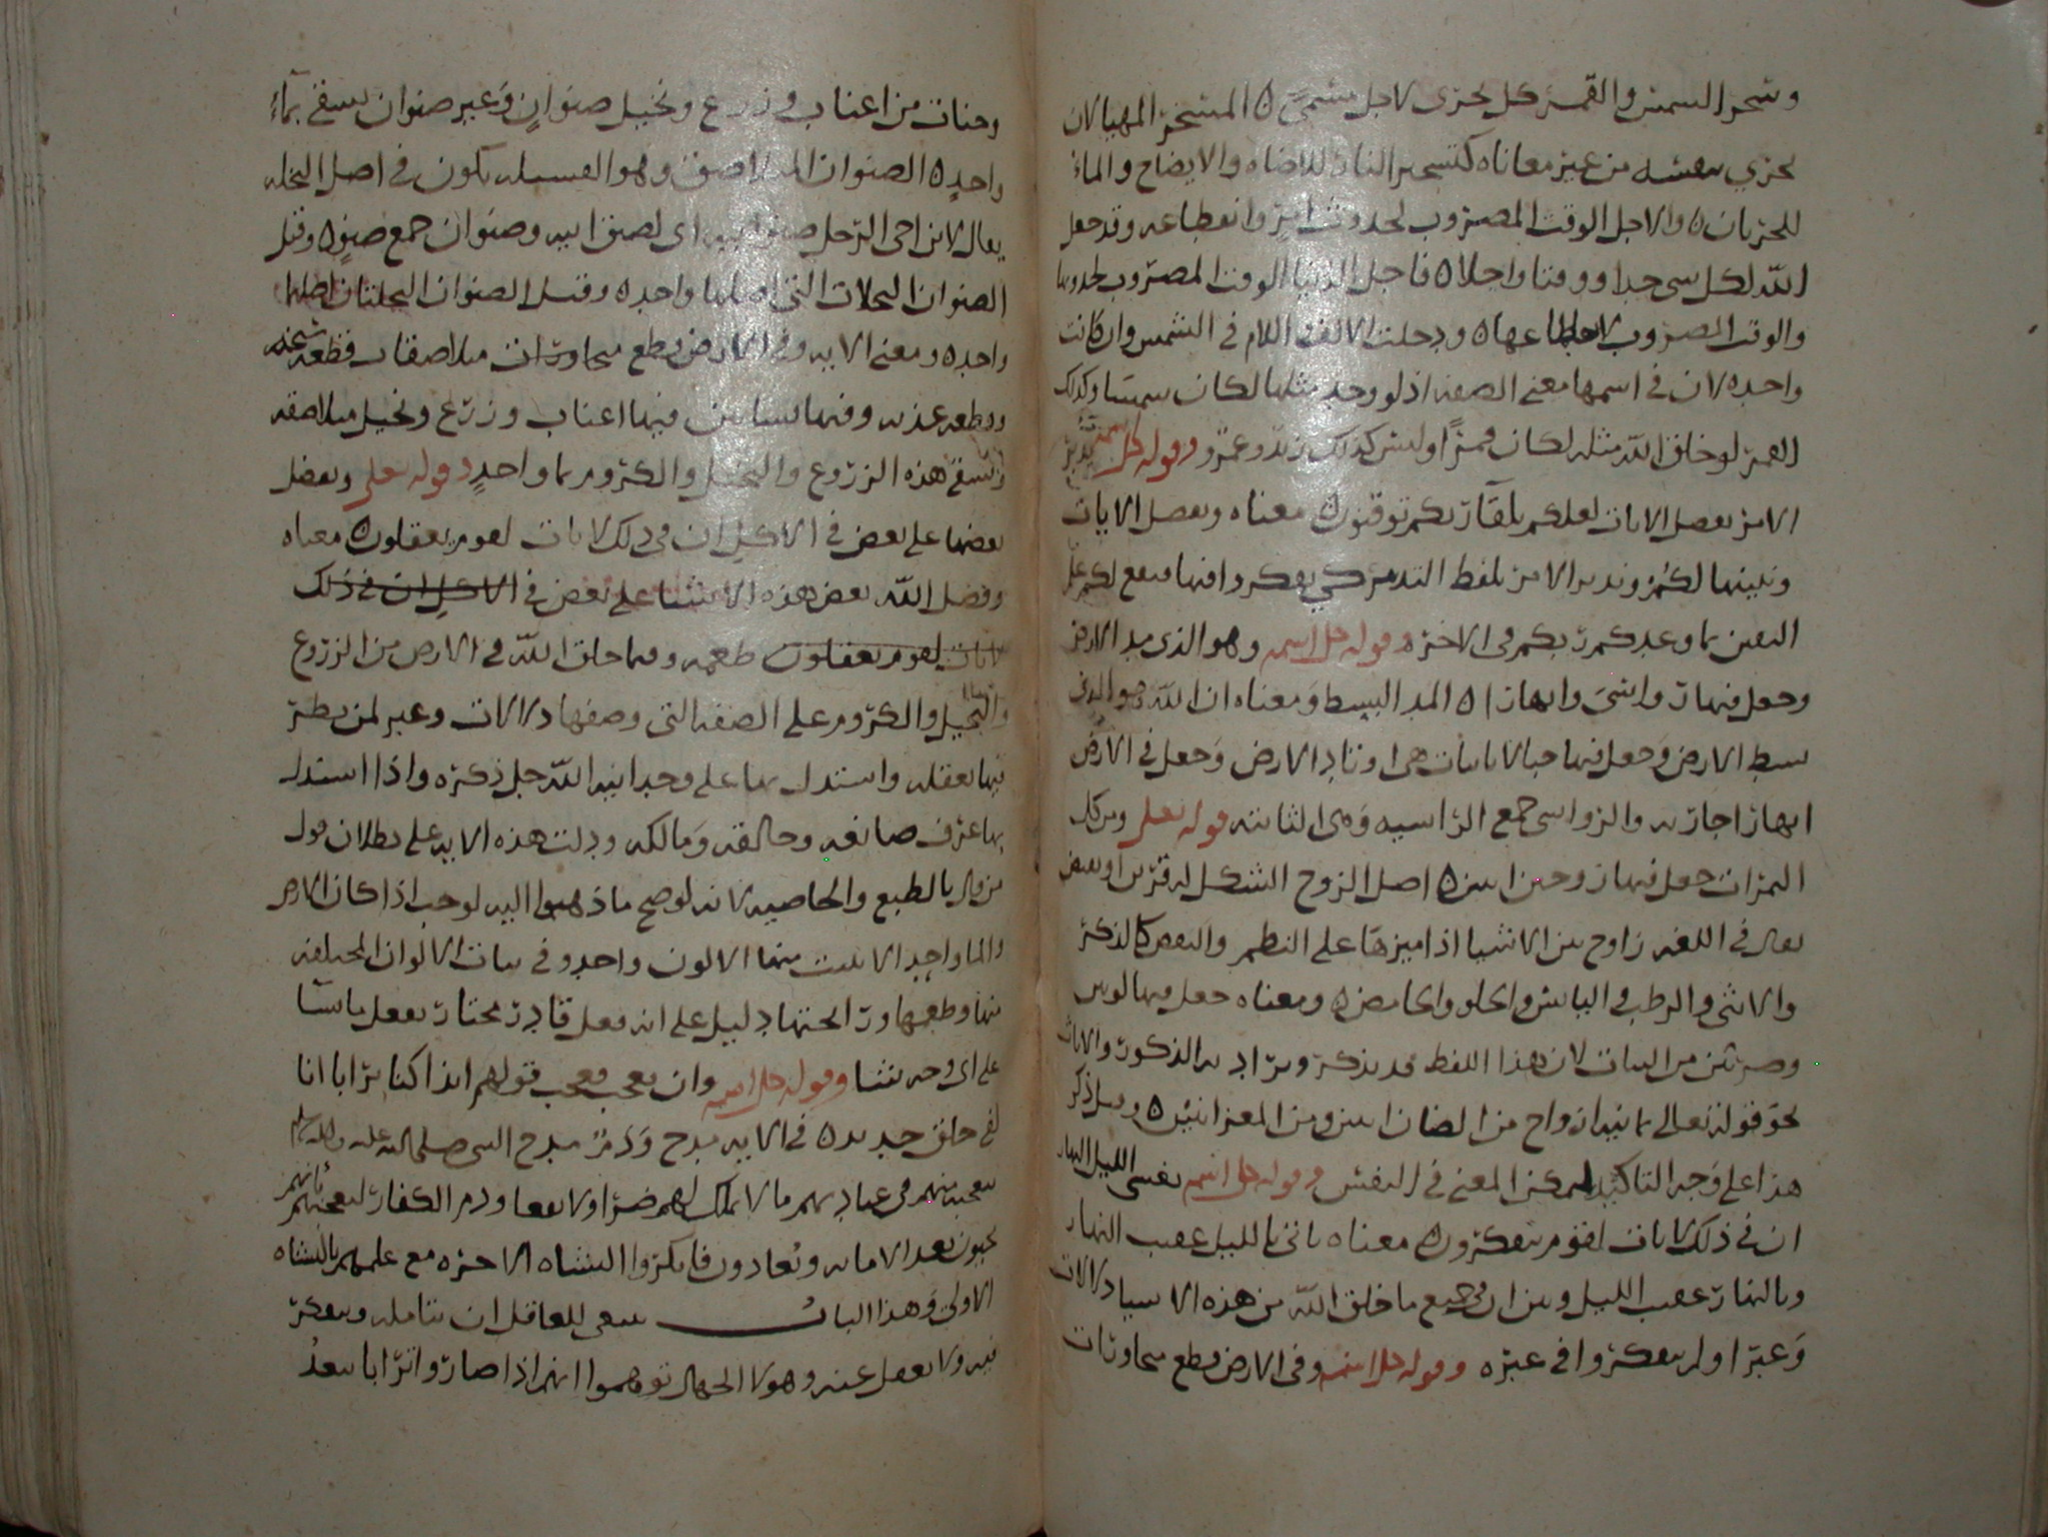 وسخر الشمس والقمر كل يجري لاجل مسمى ه المسخر المهيا لان
يجري بنفسه من غير معاناه كتسخير النار للاضاه والايضاح والماء
للجريان ه والاجل الوقت المضروب لحدوث امر وانقطاعه وقد جعل
الله لكل شي حدا ووقتا واجلا ه فاجل الدنيا الوقت المضروب لحدوثها
والوقت المضروب لانقطاعها ه ودخلت الالف واللام في الشمس وان كانت
واحده لان في اسمها معنى الصفه اذ لو وجد مثلها لكان شمسا وكذلك
القمر لو خلق الله مثله لكان قمرا وليس كذلك زيد وعمرو وقوله جل اسمه يدبر
الامر يفصل الايات لعلكم بلقآ ربكم توقنون ه معناه ويفصل الايات
ويبينها لكم ويدبر الامر بلفظ التدبير كي يفكروا فيها فيقع لكم علم
اليقين بما وعدكم ربكم في الاخره وقوله جل اسمه وهو الذي مد الارض
وجعل فيها رواسي وانهارا ه المد البسط ومعناه ان الله هو الذي
بسط الارض وجعل فيها جبالا ثابتات هي اوتاد الارض وجعل في الارض
انهارا جاريه والرواسي جمع الراسيه وهي الثابته قوله تعلى ومن كل
الثمرات جعل فيها زوجين اثنين ه اصل الزوج الشكل له قرين او بعض
يقال في اللغه زاوج بين الاشيا اذا ميزها على النظم والبعض كالذكر
والانثى والرطب واليابس والحلو والحامض ه ومعناه جعل فيها لونين
وضربين من النبات لان هذا اللفظ قد يذكر ويراد به الذكور والاناث
نحو قوله تعالى ثمانيه ازواج من الضان اثنين ومن المعز اثنين ه وقيل ذكر
هذا على وجه التاكيد ليمكن المعنى في النفس وقوله جل اسمه يغشي الليل النهار
ان في ذلك لايات لقوم يتفكرون ه معناه ياتي بالليل عقب النهار
وبالنهار عقب الليل وبين ان في جميع ما خلق الله من هذه الاشيا دلالات
وعبرا ولم يتفكروا في عبره وقوله جل اسمه وفي الارض قطع متجاورات
وجنات من اعناب وزرع ونخيل صنوان وغير صنوان يسقى بمآء
واحد ه الصنوان المتلاصق وهو الفسيله يكون في اصل النخله
يقال لابن اخي الرجل صنو ابيه اي لصيق ابيه وصنوان جمع صنو ه وقيل
الصنوان النخلات التي اصلها واحد ه وقيل الصنوان النخلتان اصلهما
واحد ه ومعنى الايه وفي الارض قطع متجاورات متلاصقات فقطعه سبخه
وقطعه عذبه وفيها بساتين فيها اعناب وزرع ونخيل متلاصقه
ويسقى هذه الزروع والنخيل والكروم بما واحد وقوله تعلى ونفضل
بعضها على بعض في الاكل ان في ذلك لايات لقوم يعقلون ه معناه
وفضل الله بعض هذه الاشيا على بعض في الاكل ان في ذلك
لايات لقوم يعقلون طعمه وفيما خلق الله في الارض من الزروع
والنخيل والكروم على الصفه التي وصفها دلالات وعبر لمن نظر
فيها بعقله واستدل بها على وحدانيه الله جل ذكره واذا استدل
بها عرف صانعه وخالقه ومالكه ودلت هذه الايه على بطلان قول
من قال بالطبع والخاصيه لانه لو صح ما ذهبوا اليه لوجب اذا كان الارض
والما واحد الا ينبت منهما الا لون واحد وفي نبات الالوان المختلفه
منها وطعمها ورائحتها دليل على انه فعل قادر مختار يفعل ما يشآ
على اي وجه يشا وقوله جل اسمه وان تعجب فعجب قولهم ائذا كنا ترابا انا
لفي خلق جديد ه في الايه مدح وذم مدح النبي صلى الله عليه واله وسلم
بتعجبه منهم في عبادتهم ما لا يملك لهم ضرا ولا نفعا وذم الكفار لتعجبهم بانهم
يحيون بعد الاماته ويعادون فانكروا النشاه الاخره مع علمهم بالنشاه
الاولى وهذا الباب ينبغي للعاقل ان يتامله ويتفكر
فيه ولا يغفل عنه وهولا الجهال توهموا انهم اذا صاروا ترابا يبعد